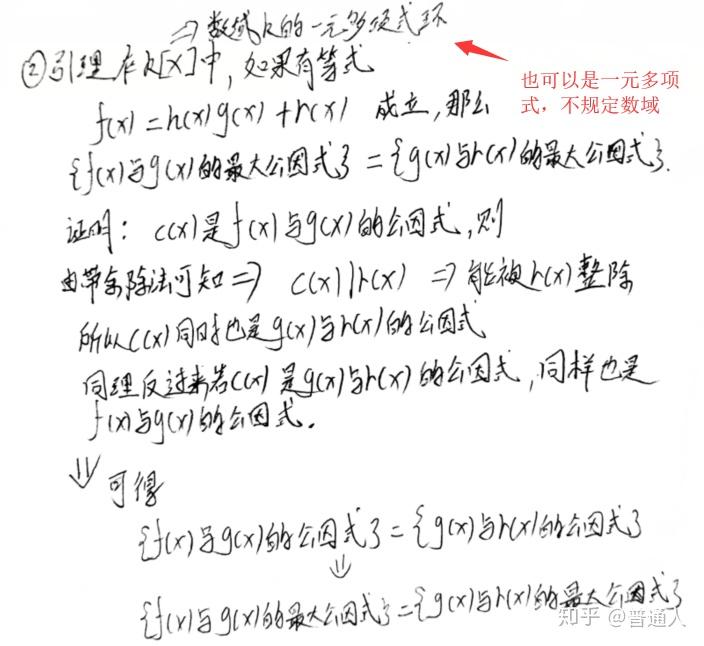 ⇒ 数域K的一元多项式环
②引理 在K[x]中，如果有等式
也可以是一元多项
式，不规定数域
f(x) = h(x)g(x) + r(x) 成立，那么
{f(x)与g(x)的最大公因式} = {g(x)与r(x)的最大公因式}.
证明：c(x)是f(x)与g(x)的公因式，则
由带余除法可知 ⇒ c(x)|r(x) ⇒ 能被r(x)整除
所以c(x)同时也是g(x)与r(x)的公因式
同理反过来若c(x)是g(x)与r(x)的公因式，同样也是
f(x)与g(x)的公因式.
⇓ 可得
{f(x)与g(x)的公因式} = {g(x)与r(x)的公因式}
⇓
{f(x)与g(x)的最大公因式} = {g(x)与r(x)的最大公因式}
知乎 @普通人